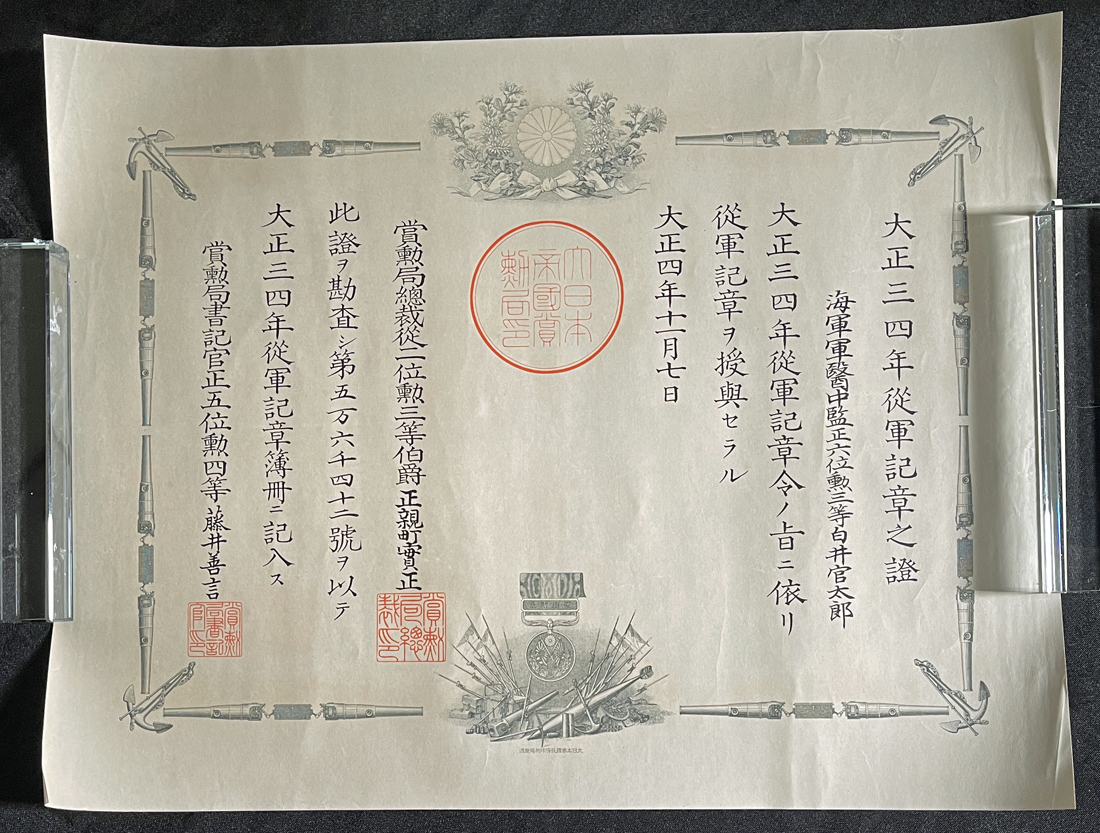 大正三四年從軍記章之證
海軍軍醫中監正六位勲三等白井官太郎
大正三四年從軍記章令ノ旨ニ依リ
從軍記章ヲ授與セラル
大正四年十一月七日
大日本
帝國賞
勲局印
賞勲局總裁從二位勲三等伯爵正親町實正
賞勲
局總
裁印
此證ヲ勘査シ第五万六千四十二號ヲ以テ
大正三四年從軍記章簿冊ニ記入ス
賞勲局書記官正五位勲四等藤井善言
賞勲
局書記
官印